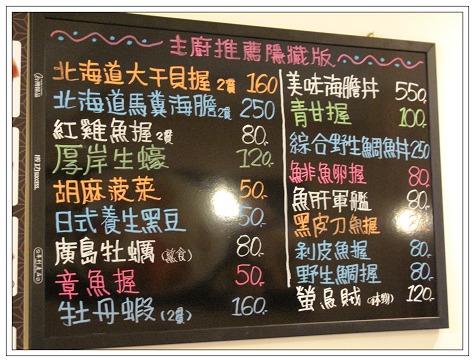 主廚推薦隱藏版
北海道大干貝握2貫 160
北海道馬糞海膽2貫 250
紅雞魚握2貫 80.
厚岸生蠔 120.
胡麻菠菜 50.
日式養生黑豆 50.
廣島牡蠣(熟食) 80.
章魚握 50.
牡丹蝦(2貫) 160.
美味海膽丼 550.
青甘握 100.
綜合野生鯛魚丼250
鯡魚卵握 80.
魚肝軍艦 80.
黑皮刀魚握 80.
剥皮魚握 80.
野生鯛握 80.
螢烏賊(沐物) 120.